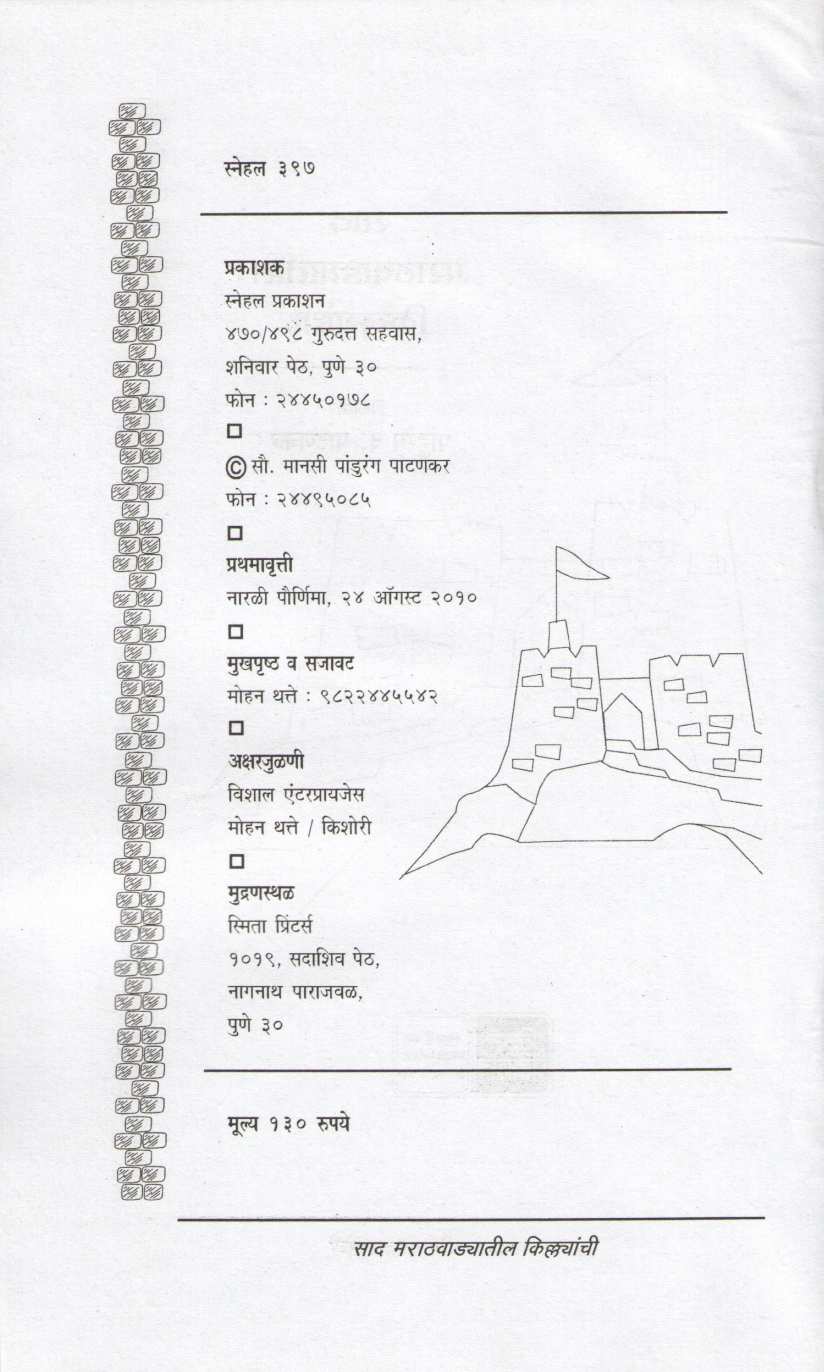 स्नेहल ३९७
प्रकाशक
स्नेहल प्रकाशन
४७०/४९८ गुरुदत्त सहवास,
शनिवार पेठ, पुणे ३०
फोन : २४४५०१७८
© सौ. मानसी पांडुरंग पाटणकर
फोन : २४४९५०८५
प्रथमावृत्ती
नारळी पौर्णिमा, २४ ऑगस्ट २०१०
मुखपृष्ठ व सजावट
मोहन थत्ते : ९८२२४४५५४२
अक्षरजुळणी
विशाल एंटरप्रायजेस
मोहन थत्ते / किशोरी
मुद्रणस्थळ
स्मिता प्रिंटर्स
१०१९, सदाशिव पेठ,
नागनाथ पाराजवळ,
पुणे ३०
मूल्य १३० रुपये
साद मराठवाड्यातील किल्ल्यांची